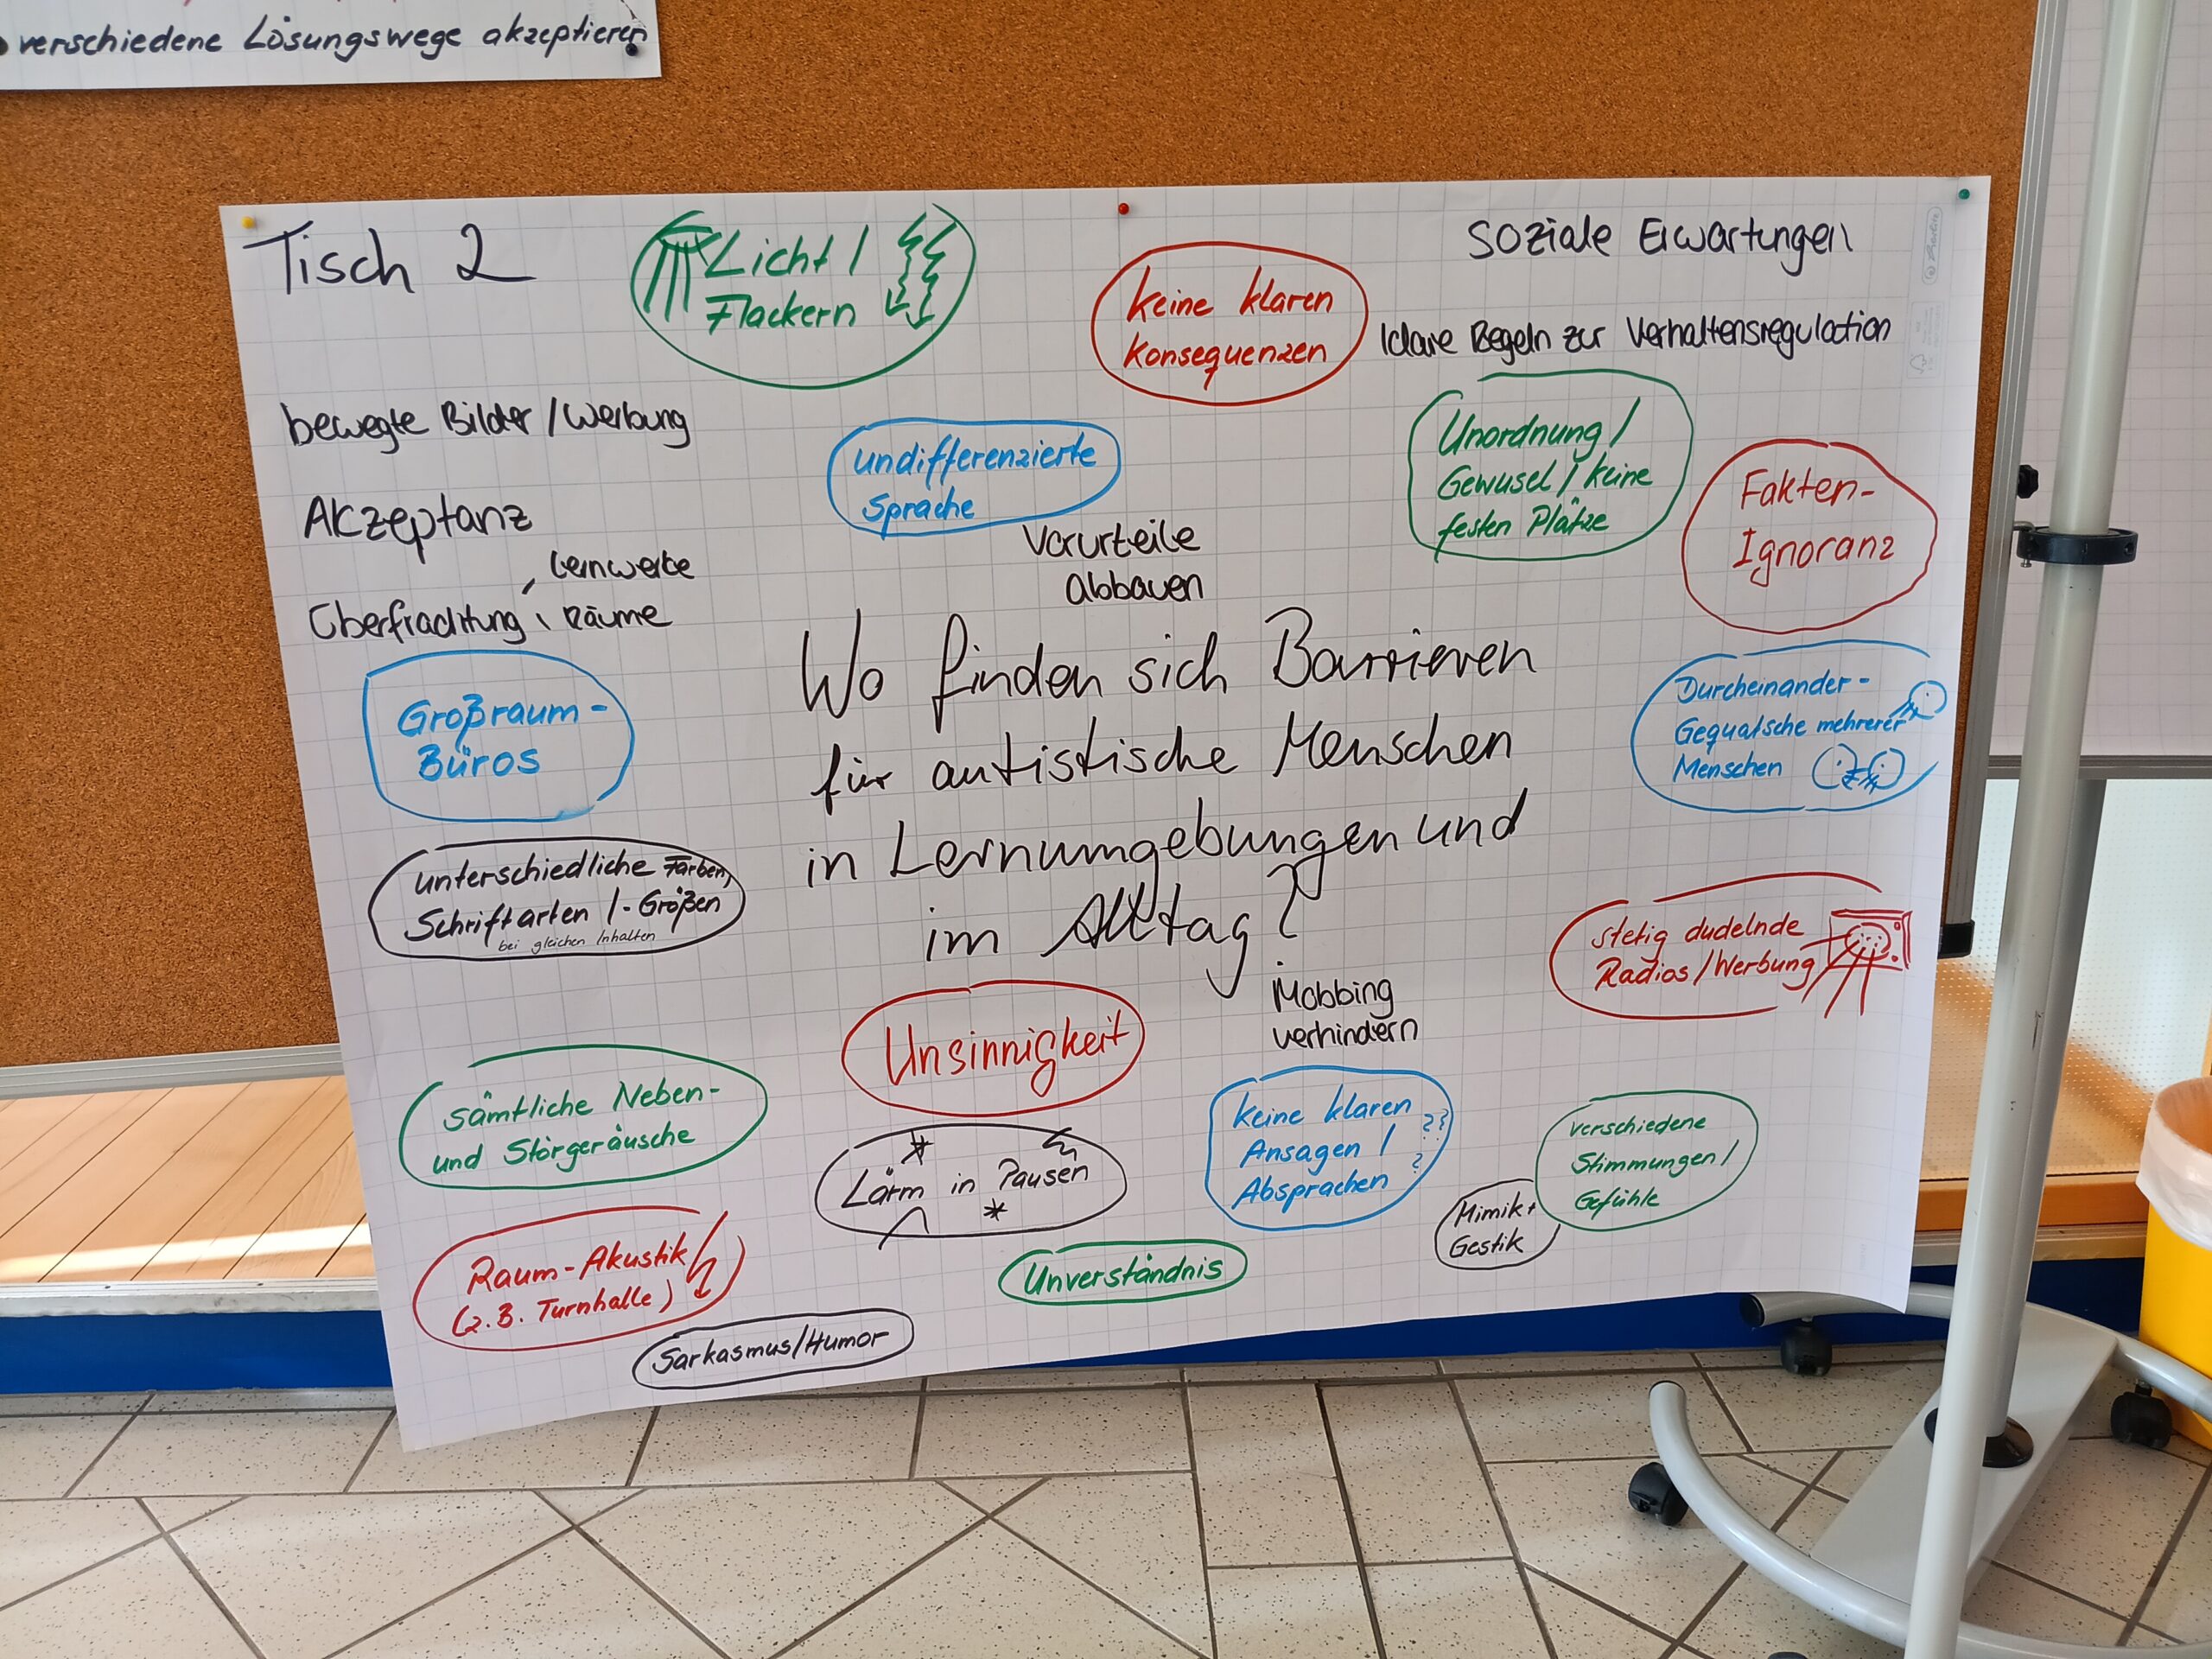 verschiedene Lösungswege akzeptieren
Tisch 2
Licht /
Flackern
keine klaren
Konsequenzen
soziale Erwartungen
klare Regeln zur Verhaltensregulation
bewegte Bilder / Werbung
undifferenzierte
Sprache
Unordnung /
Gewusel / keine
festen Plätze
Fakten-
Ignoranz
Akzeptanz
Vorurteile
abbauen
Lernwerke
Überfrachtung Räume
Wo finden sich Barrieren
für autistische Menschen
in Lernumgebungen und
im Alltag?
Großraum-
Büros
Durcheinander-
Gequatsche mehrerer
Menschen
unterschiedliche Farben,
Schriftarten /-Größen
bei gleichen Inhalten
stetig dudelnde
Radios / Werbung
Unsinnigkeit
Mobbing
verhindern
sämtliche Neben-
und Störgeräusche
Lärm in Pausen
keine klaren
Ansagen /
Absprachen
???
verschiedene
Stimmungen /
Gefühle
Mimik +
Gestik
Raum-Akustik
(z.B. Turnhalle)
Unverständnis
Sarkasmus/Humor